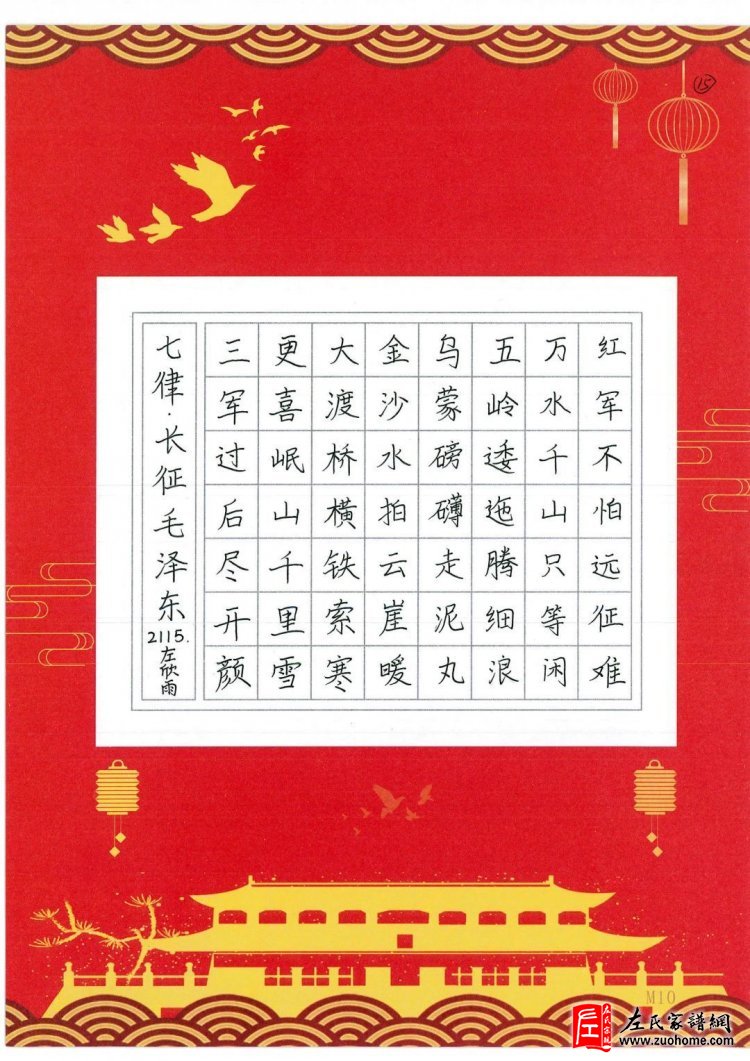 15
红军不怕远征难
万水千山只等闲
五岭逶迤腾细浪
乌蒙磅礴走泥丸
金沙水拍云崖暖
大渡桥横铁索寒
更喜岷山千里雪
三军过后尽开颜
七律·长征毛泽东
2115.左欣雨
M10
左氏家譜
左氏家譜網
www.zuohome.com